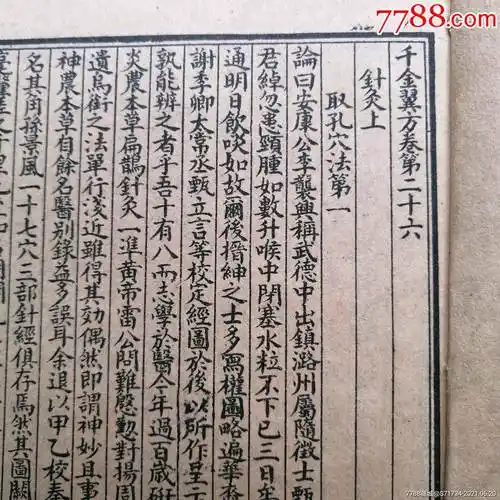 7788.com
千金翼方卷第二十六
針灸上
取孔穴法第一
論曰安康公李襲興稱武德中出鎮潞州屬隨徵士甄
君綽忽患頸腫如數升喉中閉塞水粒不下已三日矣
通明日飲啖如故爾後搢紳之士多寫權圖略遍華
謝季卿太常丞甄立言等校定經圖於後以所作呈
孰能辨之者乎吾十有八而志學於醫今年過百歲研
炎農本草扁鵲針灸一準黃帝雷公問難慇懃對揚周
遺烏銜之法單行淺近雖得其効偶然即謂神妙且事
神農本草自餘名醫別錄益多誤耳余退以甲乙校秦
名其角孫景風一十七穴三部針經俱存焉然其圖闕